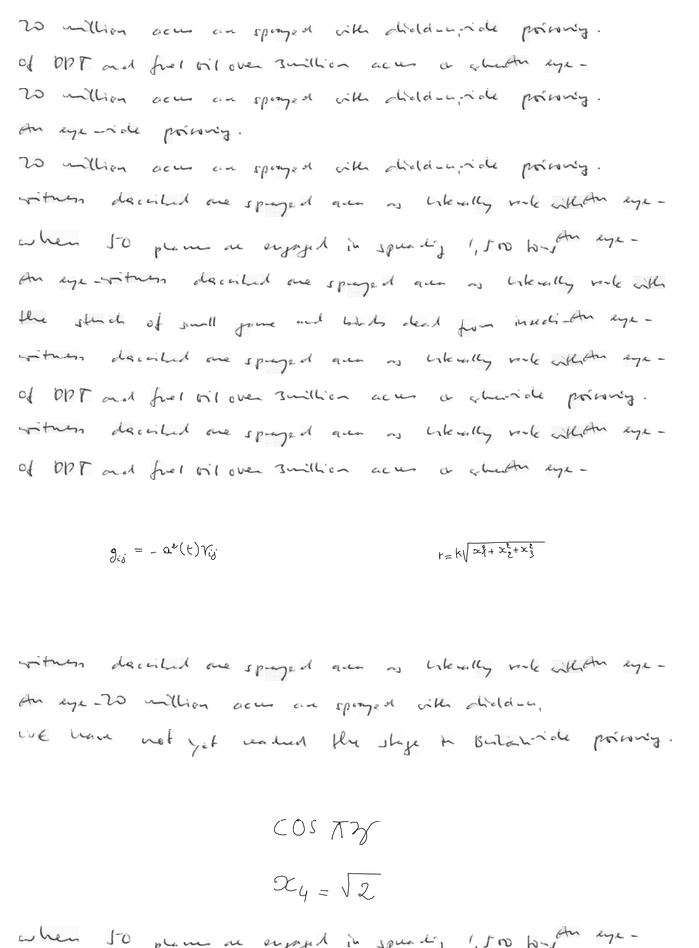 20 million acres are sprayed with dieldrin, icide poisoning.
of DDT and fuel oil over 3 million acres or when An eye-
20 million acres are sprayed with dieldrin, icide poisoning.
An eye-icide poisoning.
20 million acres are sprayed with dieldrin, icide poisoning.
witness described one sprayed area as literally reek with An eye-
when 50 planes are engaged in spreading 1,500 tons An eye-
An eye-witness described one sprayed area as literally reek with
the stench of small game and birds dead from insecti-An eye-
witness described one sprayed area as literally reek with An eye-
of DDT and fuel oil over 3 million acres or when icide poisoning.
witness described one sprayed area as literally reek with An eye-
of DDT and fuel oil over 3 million acres or when An eye-
g_{ij} = - a^2(t) γ_{ij} r = k√(x_1^2 + x_2^2 + x_3^2)
witness described one sprayed area as literally reek with An eye-
An eye-20 million acres are sprayed with dieldrin,
WE have not yet reached the stage in Britain icide poisoning.
cos πz
x_4 = √2
when 50 planes are engaged in spreading 1,500 tons An eye-